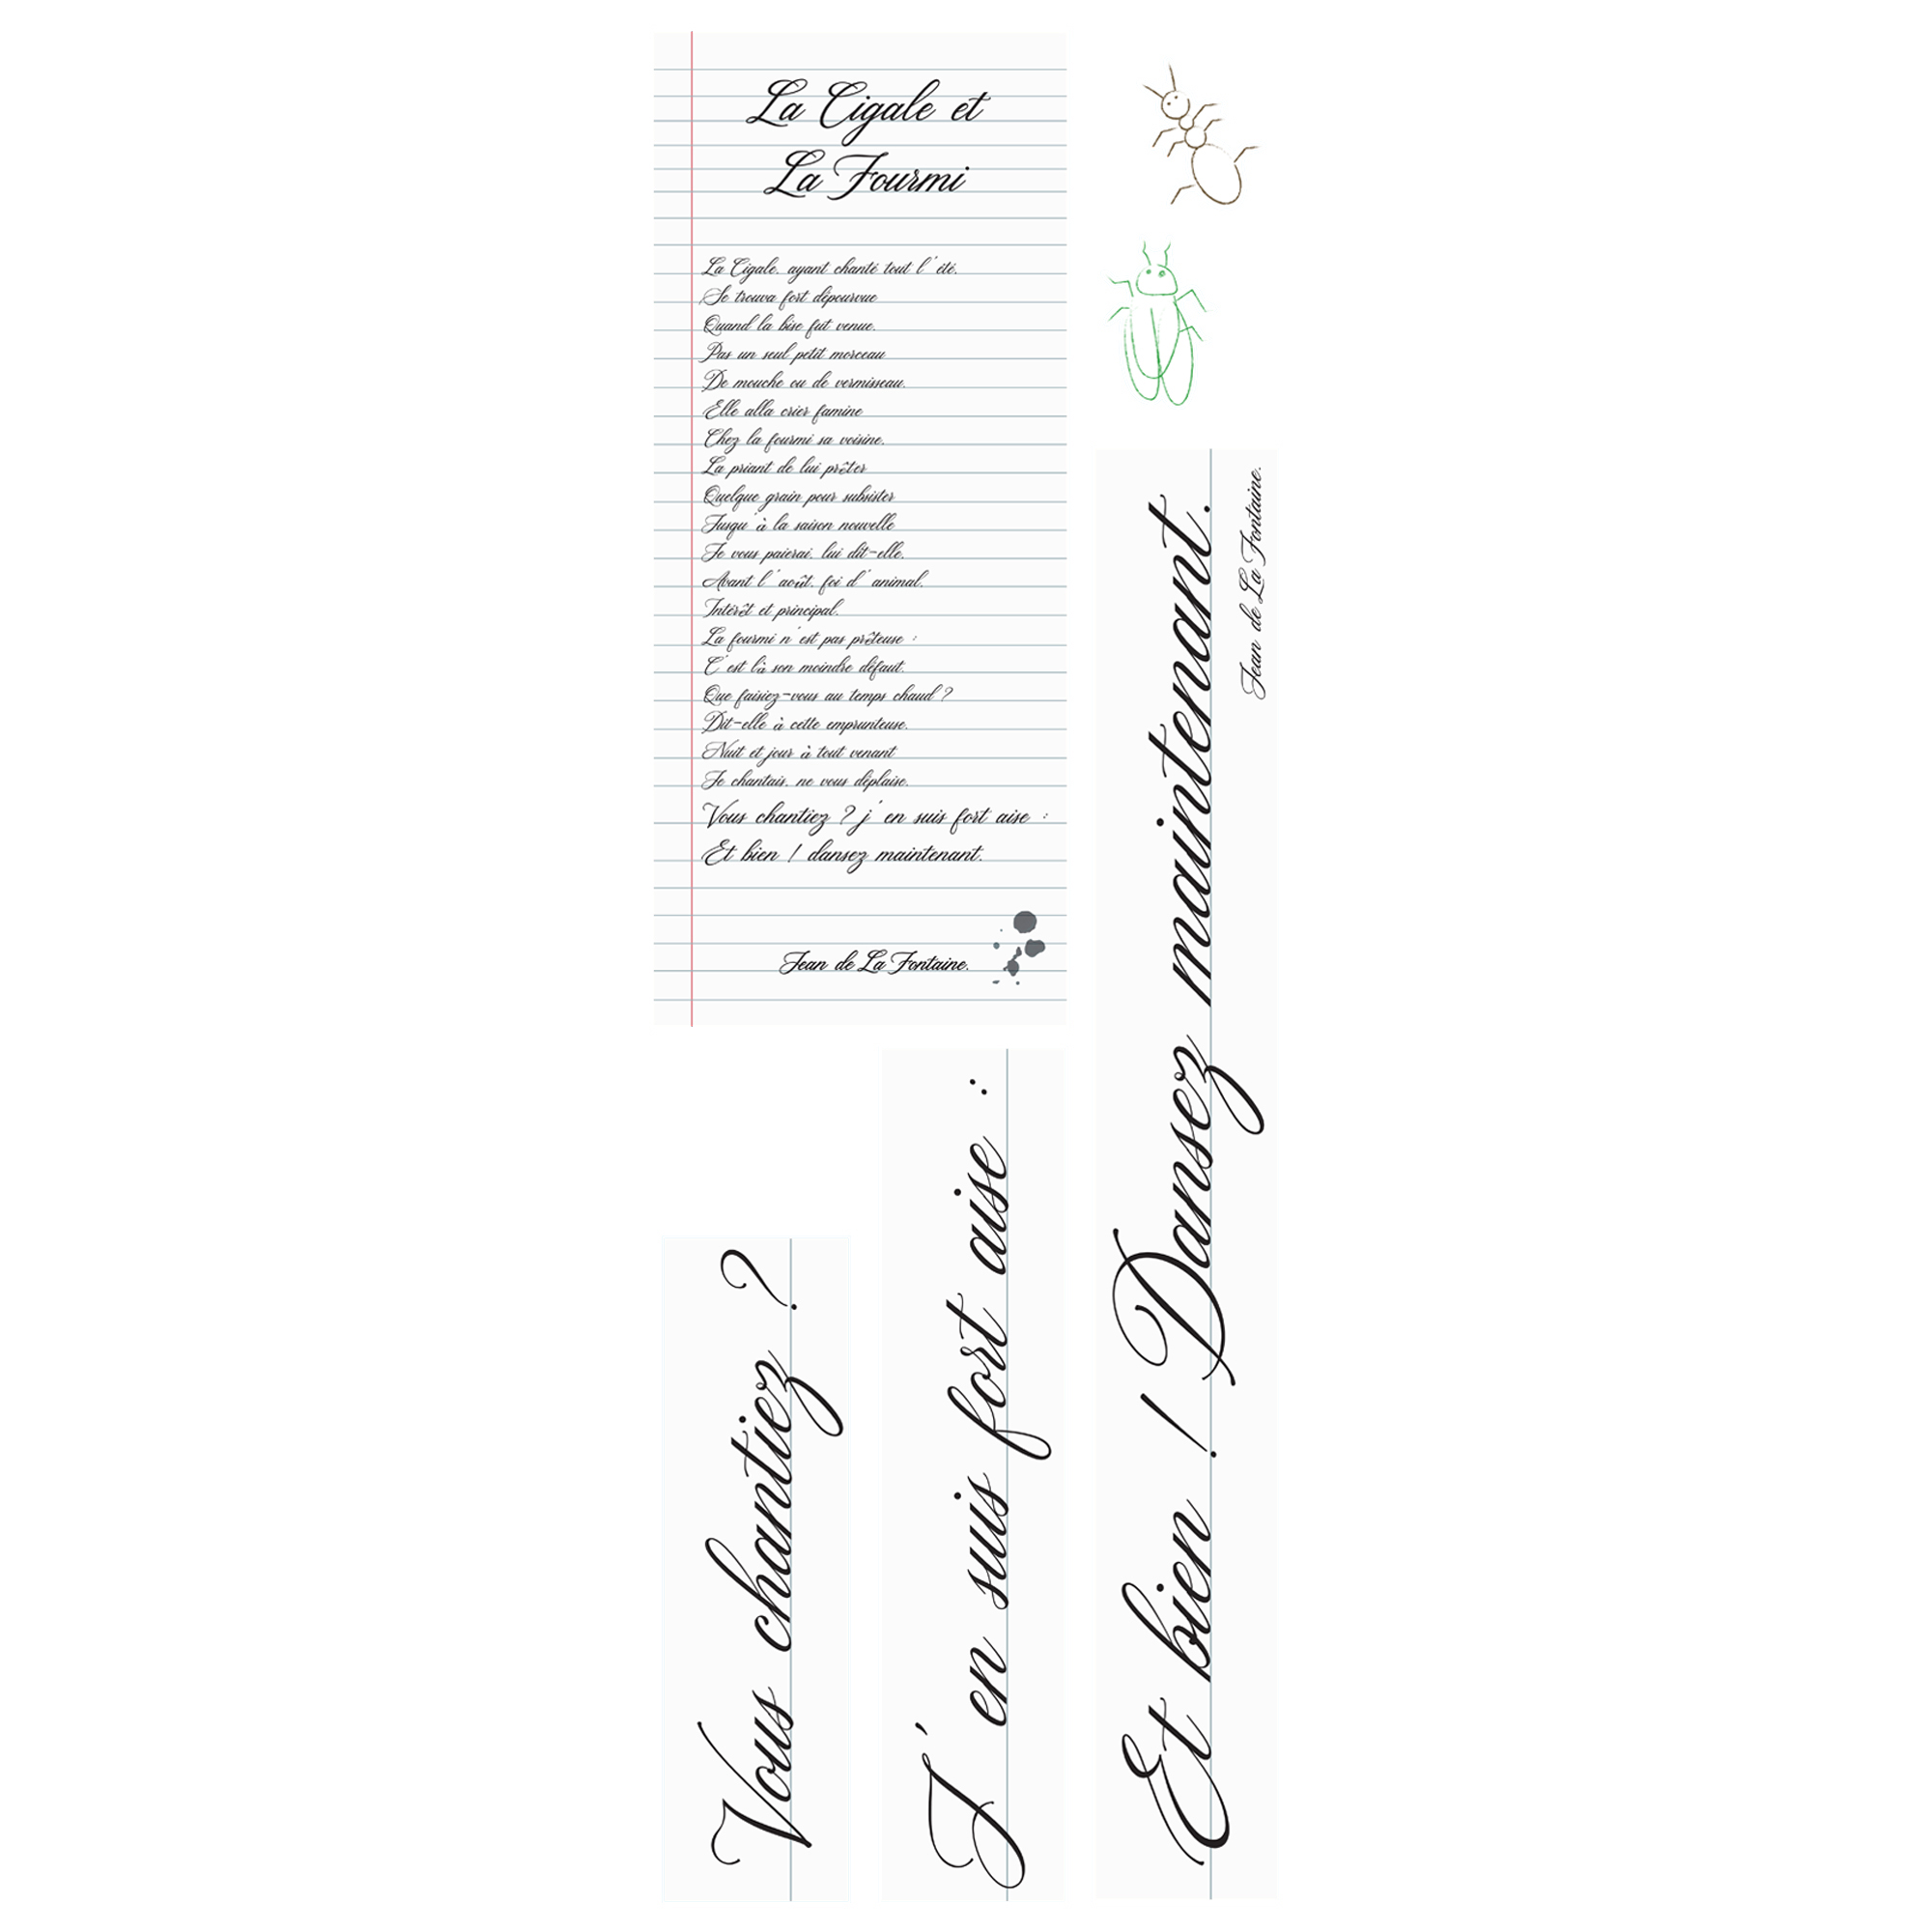 La Cigale et
La Fourmi
La Cigale, ayant chanté tout l'été,
Se trouva fort dépourvue
Quand la bise fut venue.
Pas un seul petit morceau
De mouche ou de vermisseau.
Elle alla crier famine
Chez la fourmi sa voisine,
La priant de lui prêter
Quelque grain pour subsister
Jusqu'à la saison nouvelle
Je vous paierai, lui dit-elle,
Avant l'août, foi d'animal,
Intérêt et principal.
La fourmi n'est pas prêteuse :
C'est là son moindre défaut.
Que faisiez-vous au temps chaud ?
Dit-elle à cette emprunteuse.
Nuit et jour à tout venant
Je chantais, ne vous déplaise.
Vous chantiez ? j'en suis fort aise :
Et bien ! dansez maintenant.
Jean de La Fontaine.
Vous chantiez ?
J'en suis fort aise :
Et bien ! Dansez maintenant.
Jean de La Fontaine.